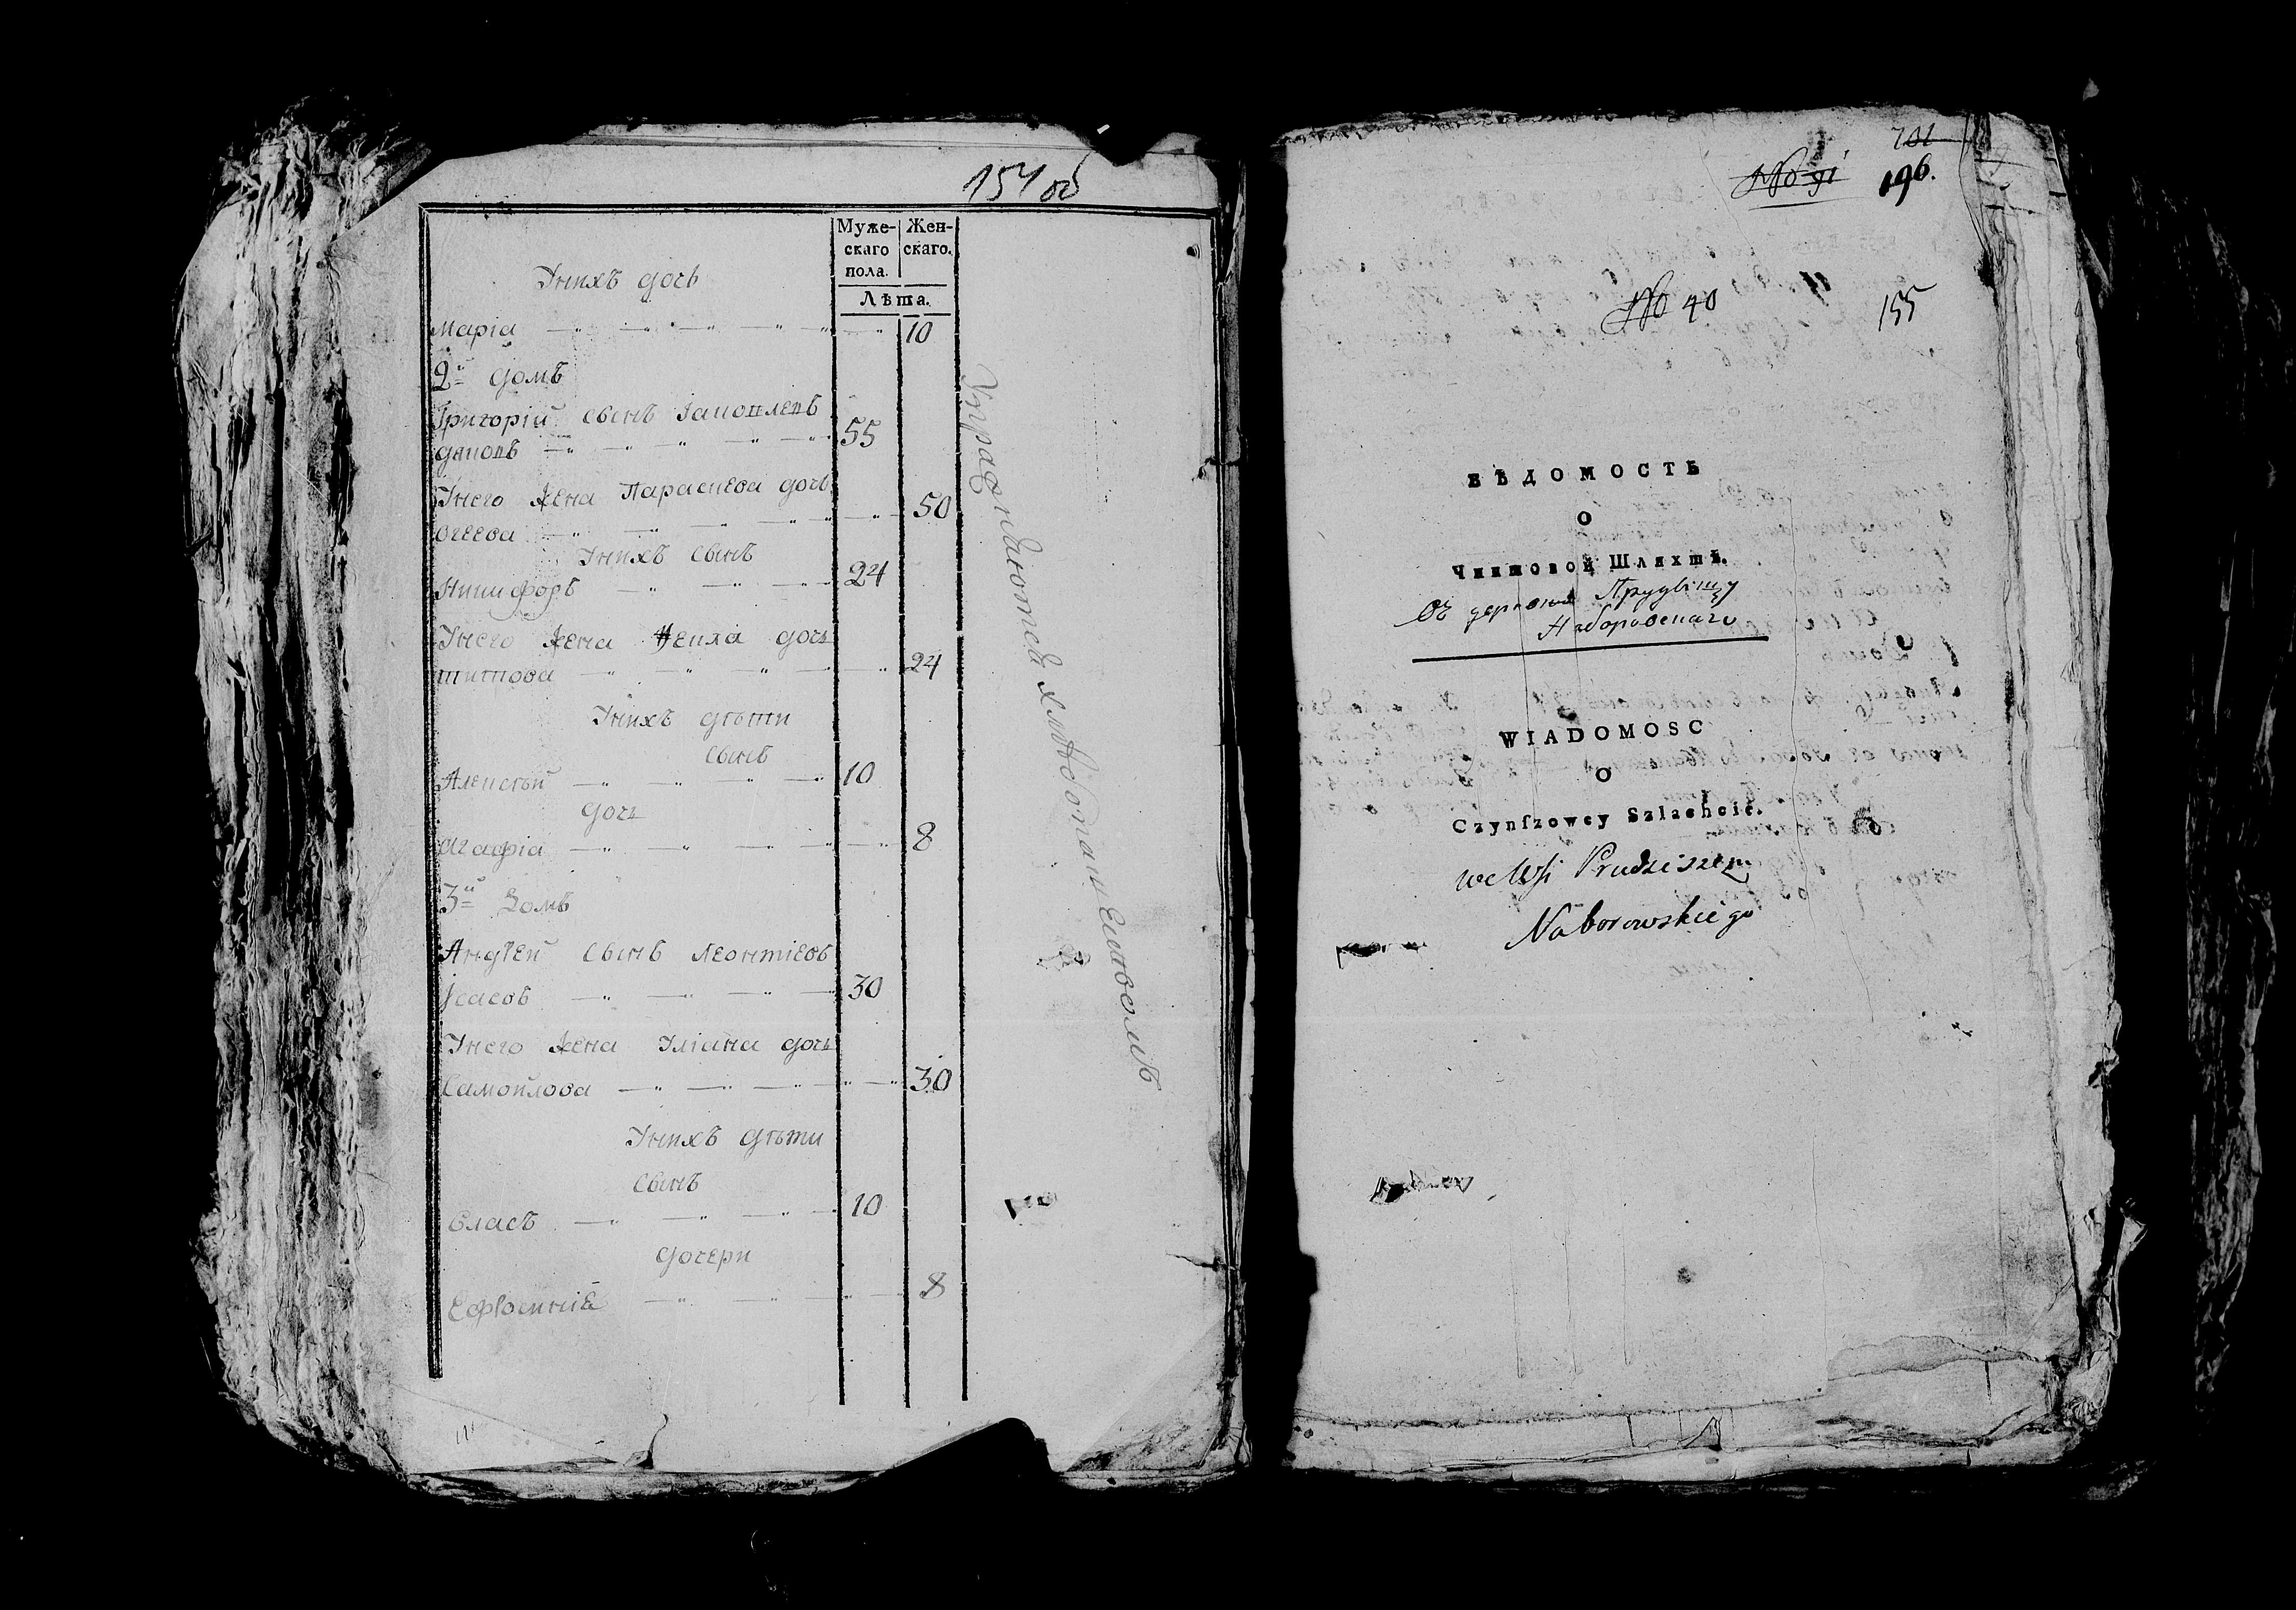 154 об
Муже-
скаго
пола.
Жен-
скаго.
Лѣта.
Унихъ дочь
Марія 10
2й домъ
Григорій сынъ
55
Унего жена Параскева дочь
50
Унихъ сынъ
Никифоръ 24
Унего жена Фекла дочь
титова 24
Унихъ дѣти
сынъ
Алексѣй 10
дочь
Агафіа 8
3й домъ
Андрей сынъ леонтіевъ
Ісаевъ 30
Унего жена Уліана дочь
Самойлова 30
Унихъ дѣти
сынъ
власъ 10
дочери
Ефросиніѣ 8
Упражндаются хлѣбопашествомъ
701
No 91 196.
No 40 155
ВѢДОМОСТЬ
О
Чиншовой Шляхтѣ.
Въ деревни Прудыщу
Наборовскаго
WIADOMOSC
O
Czynſzowey Szlachcie.
we Wsi Prudziszczu
Naborowskiego